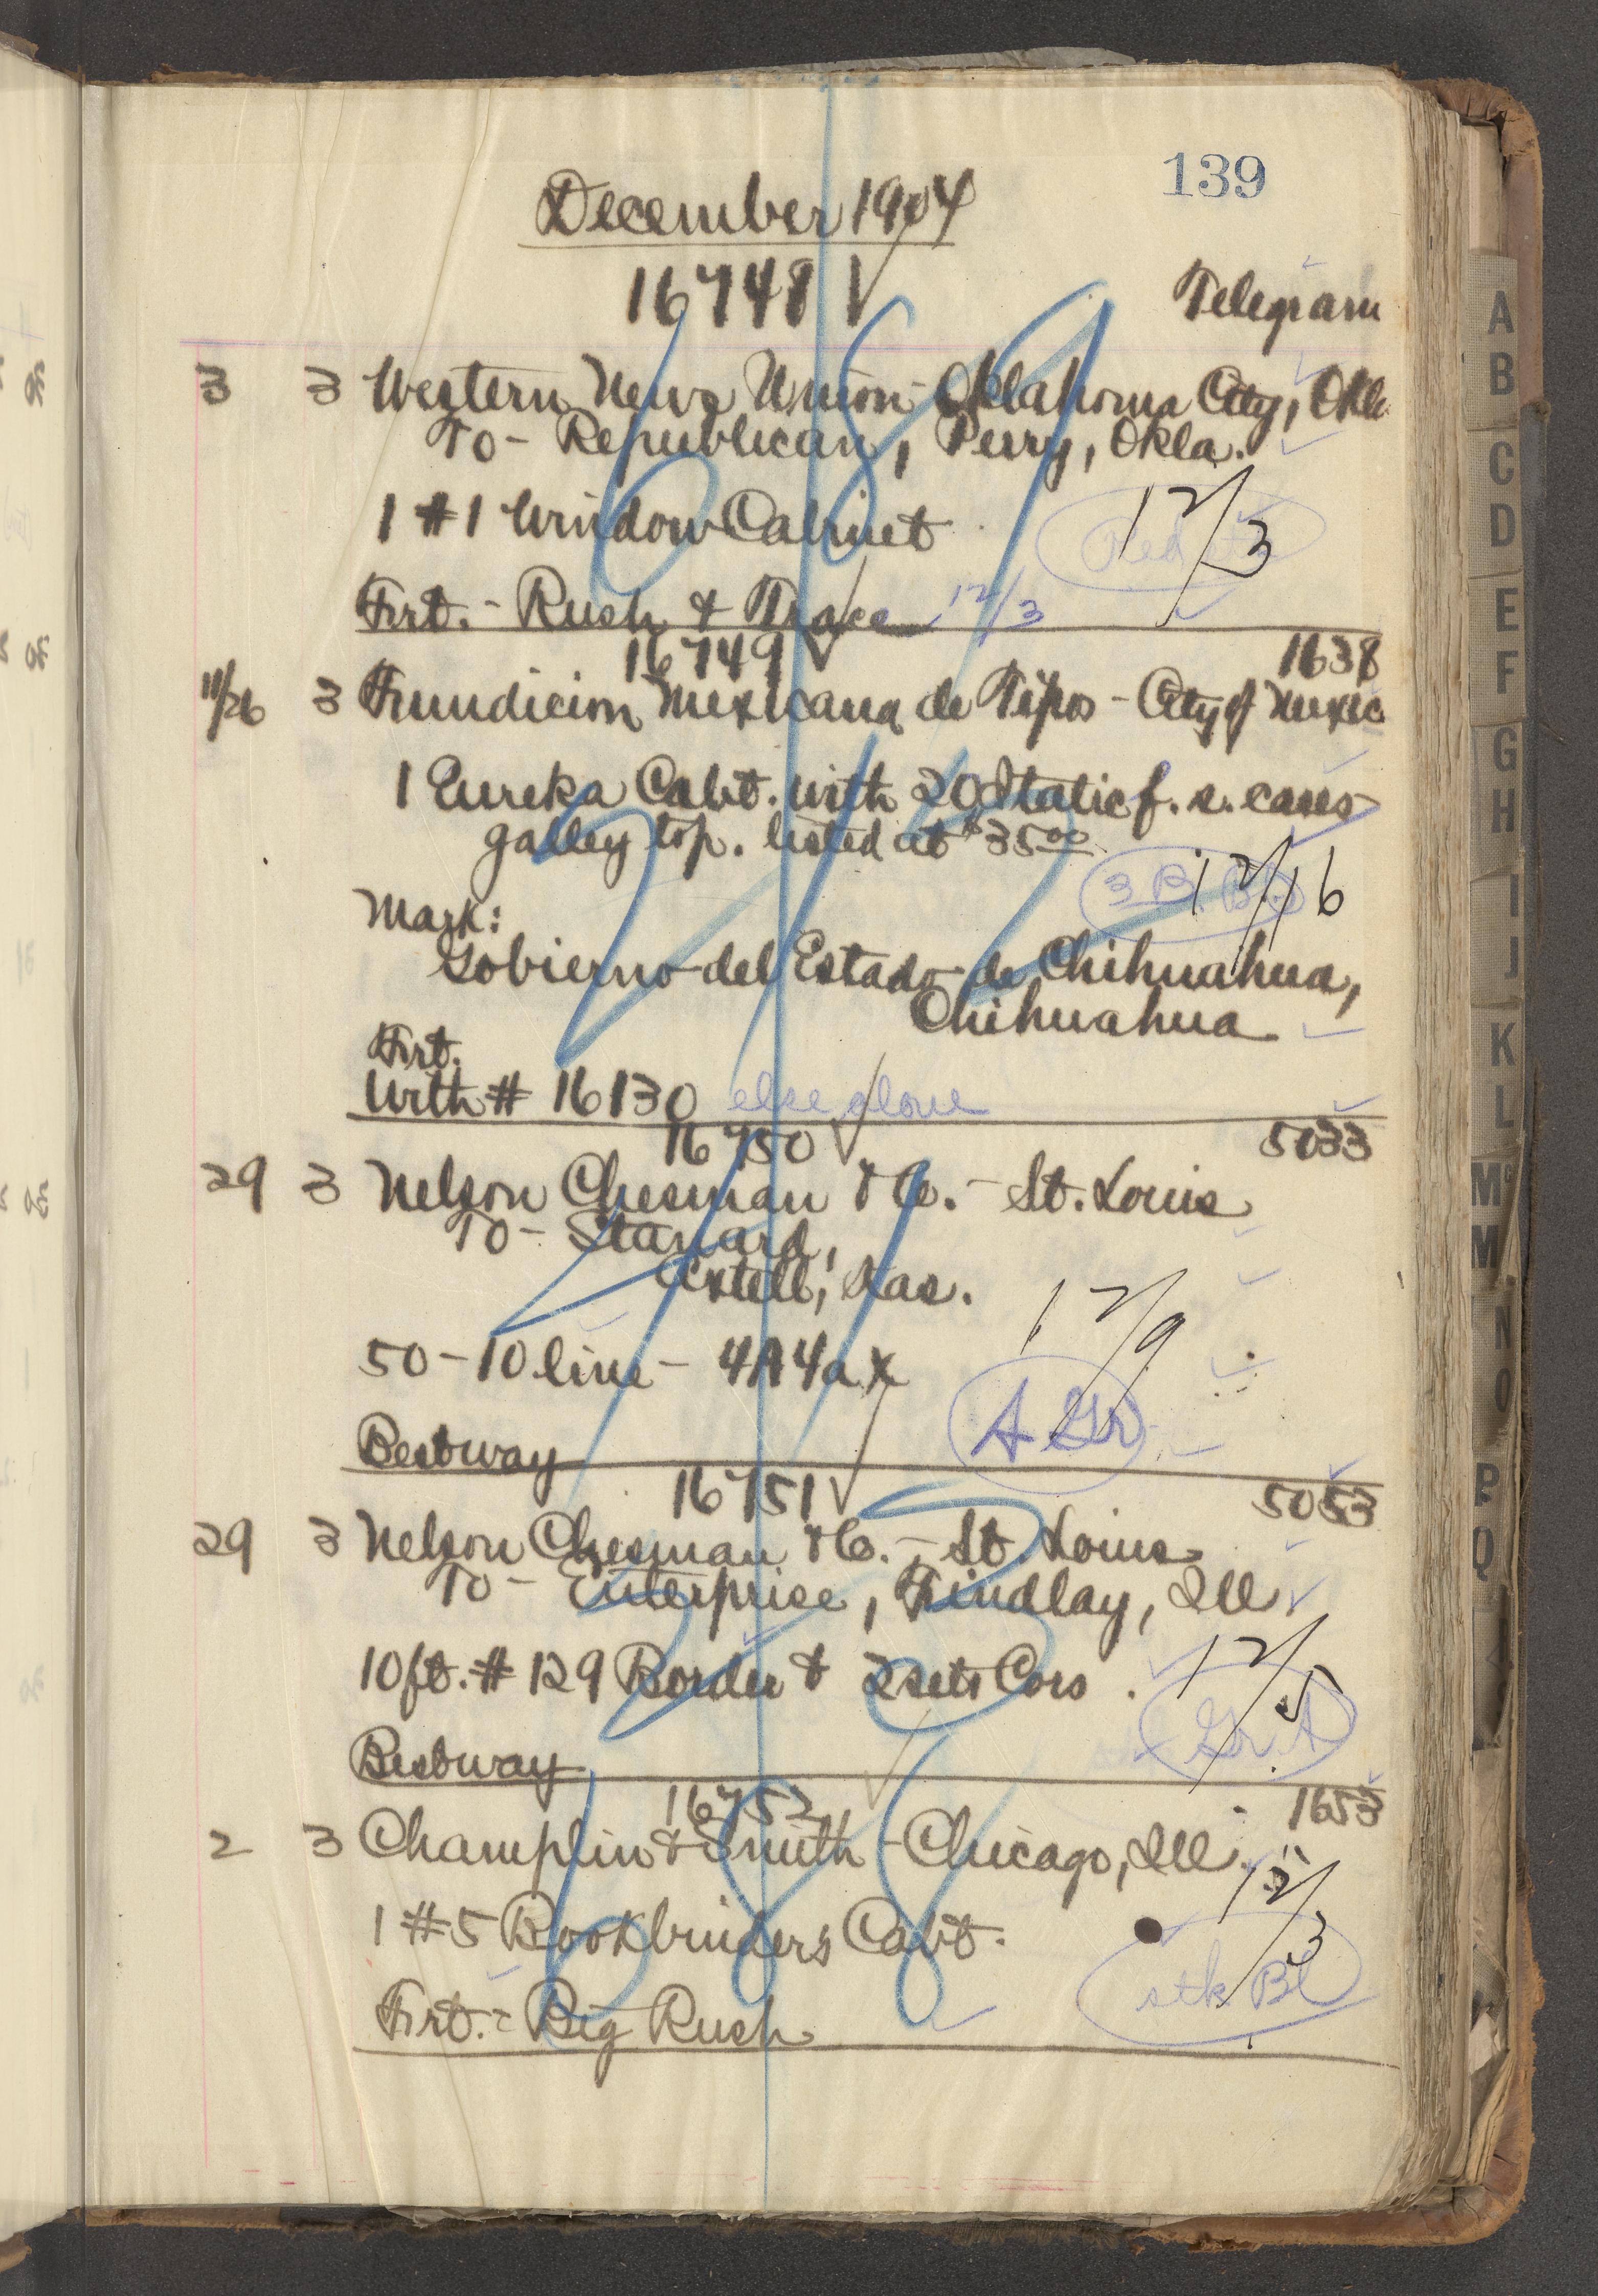 139
December 1904
16748 √
Telegram
3 3 Western News Union - Oklahoma City, Okla
To - Republican, Perry, Okla.
1 #1 Window Cabinet
12/3
Frt. - Rush & Trace 12/3
16749 √ 1638
11/26 3 Fundicion Mexicana de Tipos - City of Mexic
1 Eureka Cabt. with 20 Italic f. s. cases
galley top. listed at $35.00
12/16
Mark:
Gobierno del Estado de Chihuahua,
Chihuahua
Frt.
With # 16130 else alone
16750 √ 5033
29 3 Nelson Chesman & Co. - St. Louis
To - Stanard,
Axtell, Kas.
12/9
50 - 10 line - 4A 4a x
A Gr
Bestway
16751 √ 5053
29 3 Nelson Chesman & Co. - St. Louis
To - Enterprise, Findlay, Ill.
10 ft. # 129 Border & 2 sets Cors.
12/5
Gr A
Bestway
16752 1653
2 3 Champlin & Smith - Chicago, Ill.
12/3
1 #5 Bookbinders Cabt.
stk Bl
Frt. - Big Rush
A
B
C
D
E
F
G
H
I
J
K
L
Mc
M
N
O
P
Q